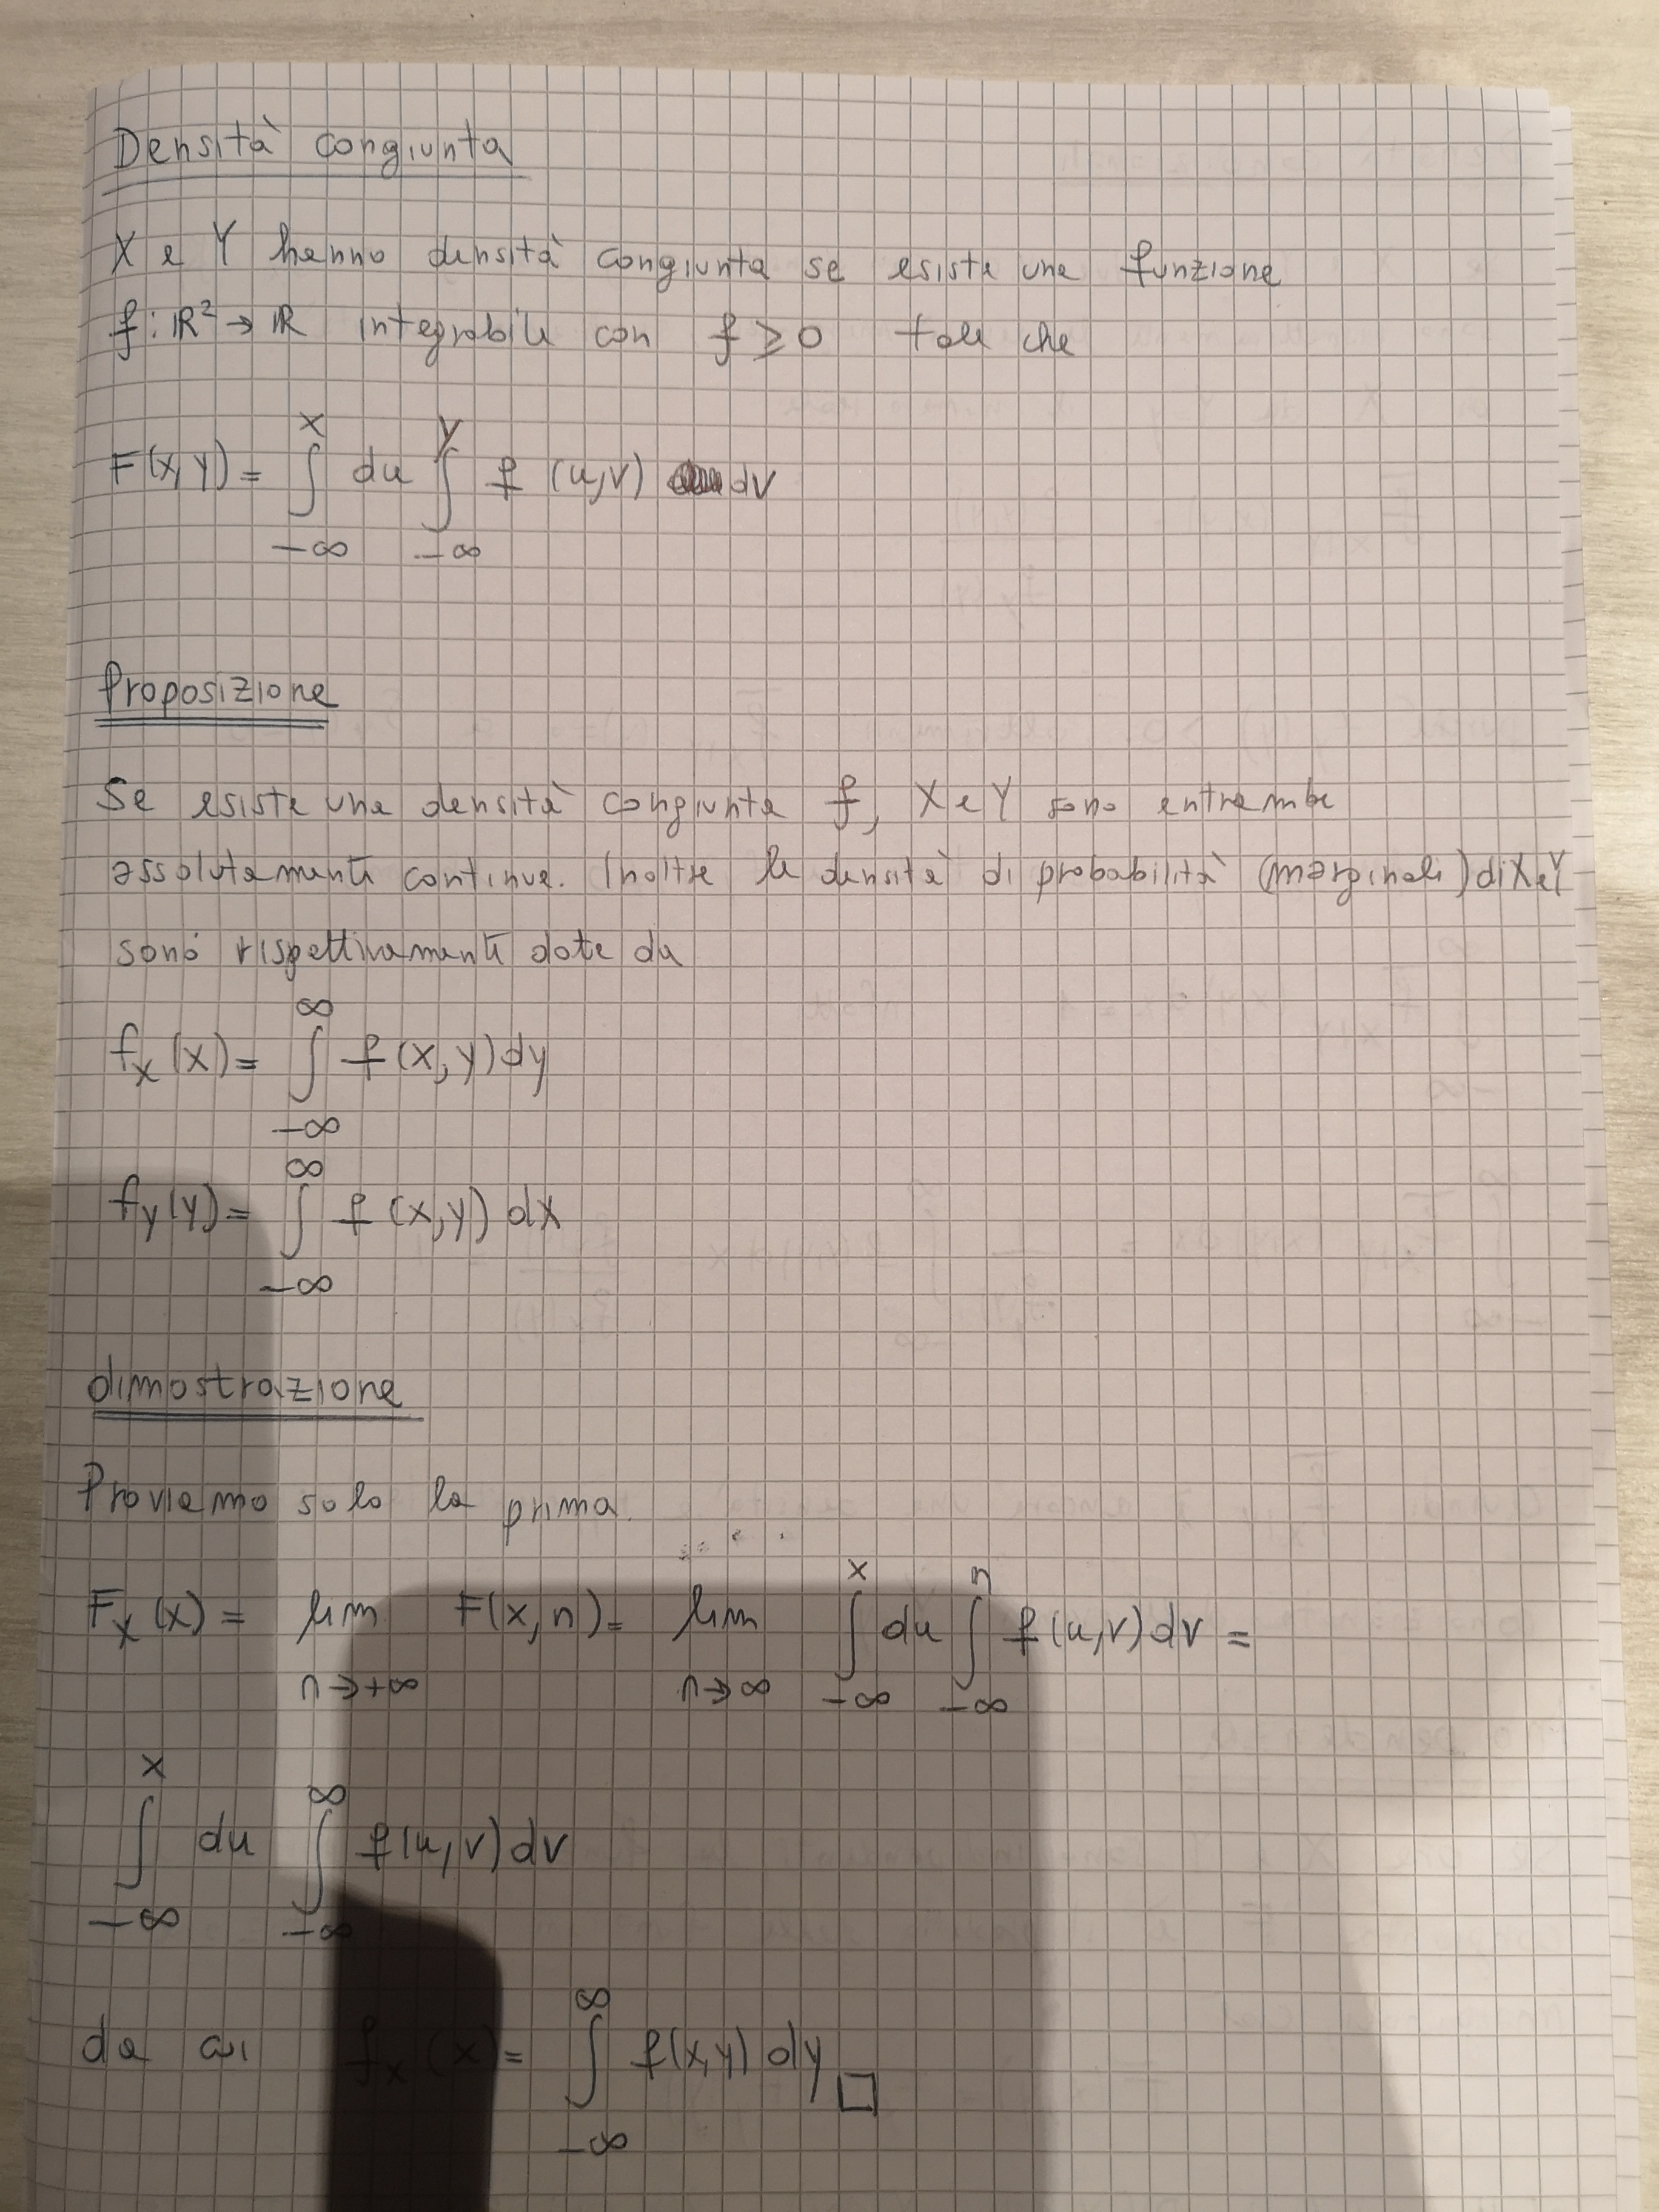 Densità congiunta
X e Y hanno densità congiunta se esiste una funzione
f: ℝ² → ℝ integrabile con f ⩾ 0 tale che
F(x,y) = ∫_{-∞}^{x} du ∫_{-∞}^{y} f (u,v) dv
Proposizione
Se esiste una densità congiunta f, X e Y sono entrambe
assolutamente continue. Inoltre le densità di probabilità (marginali) di X e Y
sono rispettivamente date da
f_X (x) = ∫_{-∞}^{∞} f (x,y) dy
f_Y (y) = ∫_{-∞}^{∞} f (x,y) dx
dimostrazione
Proviamo solo la prima.
F_X (x) = lim_{n→+∞} F(x,n) = lim_{n→∞} ∫_{-∞}^{x} du ∫_{-∞}^{n} f (u,v) dv =
∫_{-∞}^{x} du ∫_{-∞}^{∞} f(u,v) dv
da cui f_X (x) = ∫_{-∞}^{∞} f(x,y) dy □